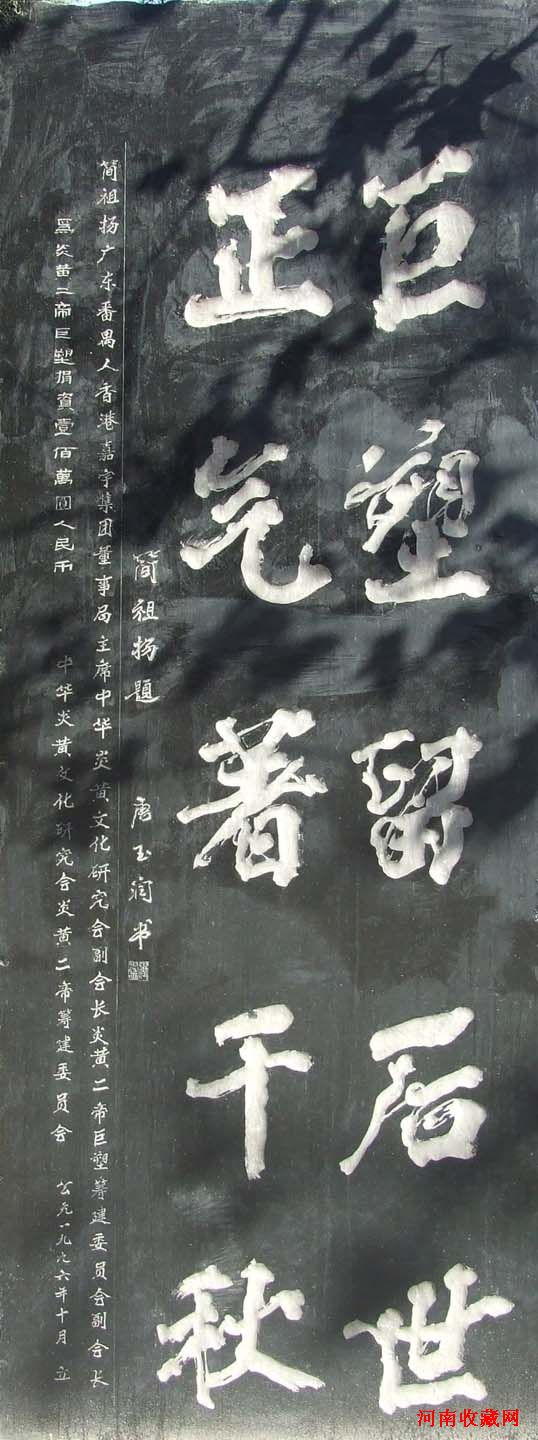 巨塑留后世
正气著千秋
简祖扬题 唐玉润书
简祖扬广东番禺人香港嘉宇集团董事局主席中华炎黄文化研究会副会长炎黄二帝巨塑筹建委员会副会长
为炎黄二帝巨塑捐資壹佰萬圓人民币 中华炎黄文化研究会炎黄二帝筹建委员会 公元一九九六年十月 立
河南收藏网